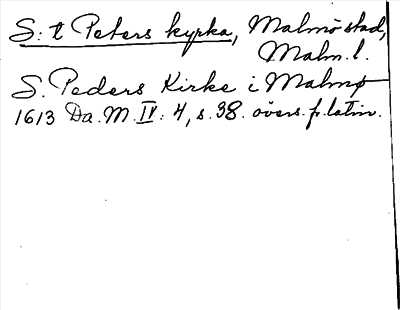 S:t Peters kyrka, Malmö stad,
Malm. l.
S. Peders Kirke i Malmø
1613 Da. M. IV: 4, s. 38. övers. fr. latin.